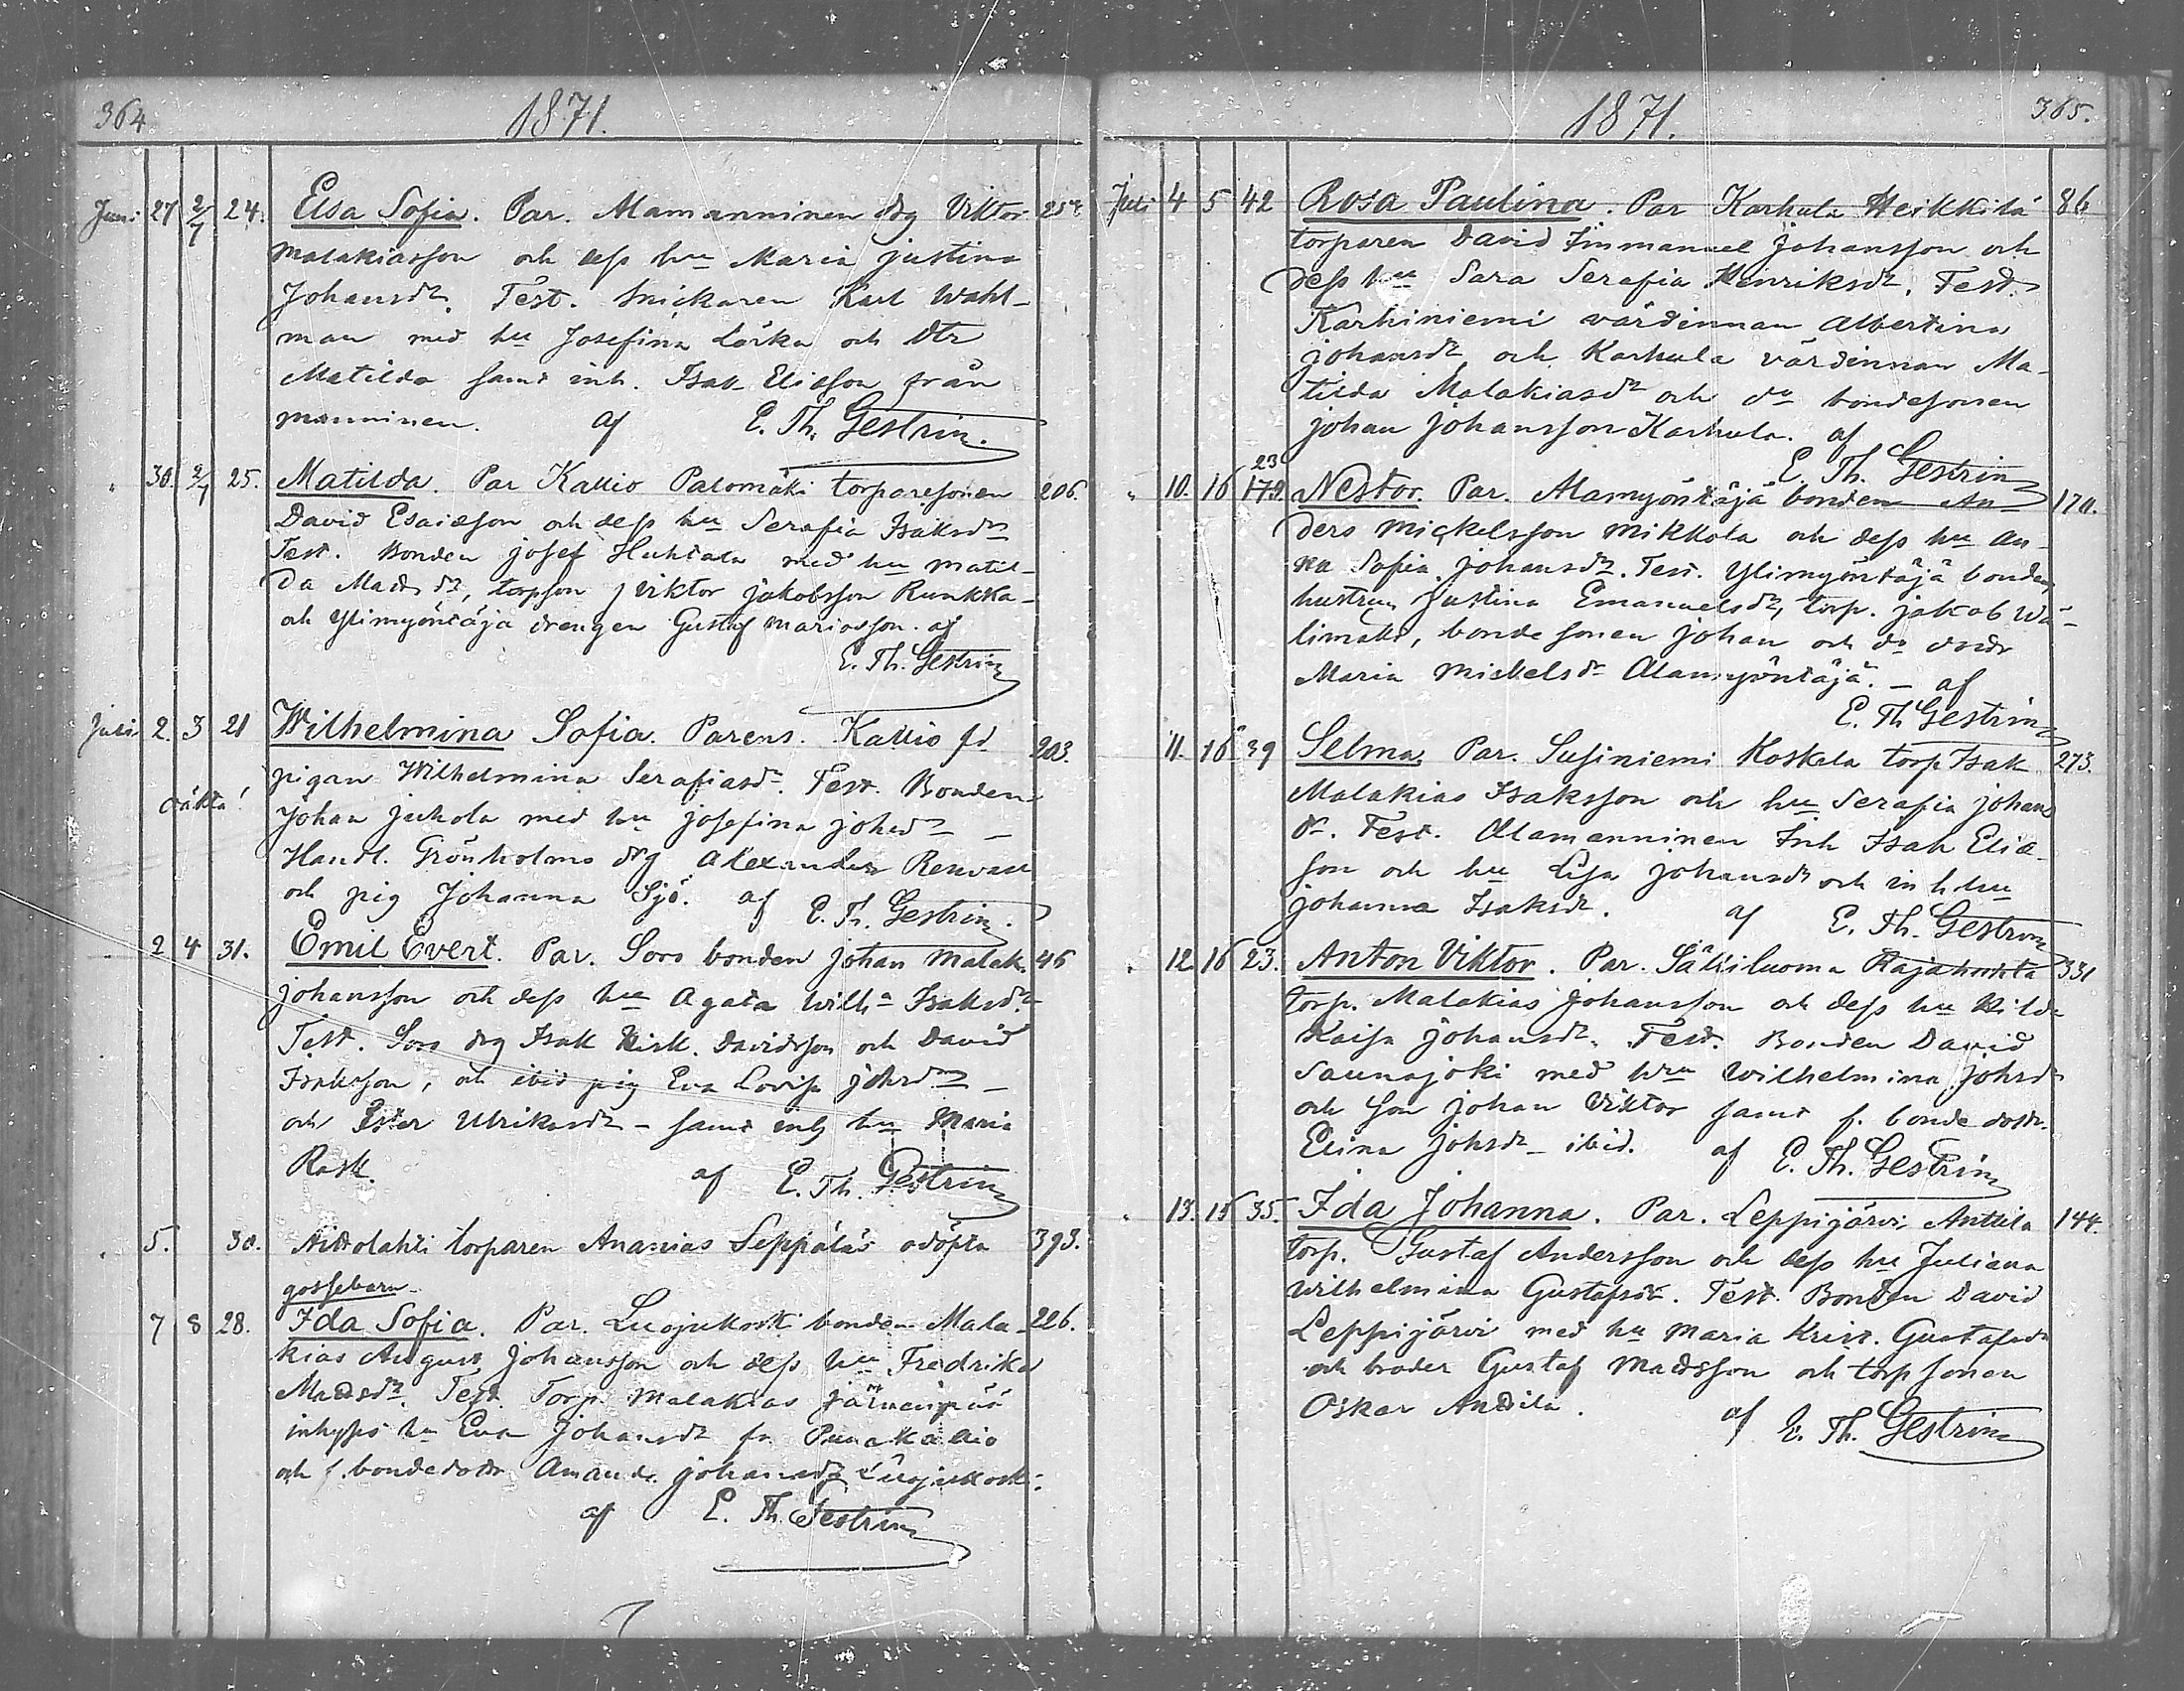 364
1871.
Juni 27 2/7 24. Elsa Sofia. Par. Alamanninen drg Viktor
Malakiasson och dess hu Maria Justina
Johansdr. Test. Snickaren Karl Wahl-
man med hu Josefina Lörka och Dtr
Matilda samt inh. Isak Eliasson från
manninen. af E. Th. Gestrin.
" 30. 2/7 25. Matilda. Par Kallio Palomäki torparesonen 206.
David Esaiasson och dess hu Serafia Isaksdr
Test. Bonden Josef Huhtala med hu Matil-
da Matsdr, torpson Viktor Jakobsson Runkka-
och Ylimyöntäjä drengen Gustaf Mariasson. af
E. Th. Gestrin
Juli 2. 3 21 Wilhelmina Sofia. Parens. Kallio fd 203.
pigan Wilhelmina Serafiasdr. Test. Bonden
oäkta!
Johan Juhola med hu Josefina Johsdr –
Handl. Grönholms drg Alexander
och pig Johanna Sjö. af E. Th. Gestrin.
2 4 31. Emil Evert. Par. Soro bonden Johan Malak. 46
Johansson och dess hu Agata Wilh:a Isaksdr.
Test. Soro drg Isak Hisk. Davidsson och David
Isaksson, och ibid pig Eva Lovisa Johsdr –
och Ester Ulrikasdr – samt hu Maria
Rask. af E. Th. Gestrin
" 5. 30. torparen Ananias Seppäläs odöpta 393.
gossebarn
7 8 28. Ida Sofia. Par. Luojukoski bonden Mala- 226.
kias August Johansson och dess hu Fredrika
Matsdr. Test. Torp. Malakias
inhyses hu Eva Johansdr fr. Punakallio
och f. bondedotr Amanda Johansdr Luojukoski.
af E. Th. Gestrin
1871.
365.
Juli 4 5 42 Rosa Paulina. Par Karhula Heikkilä 86
torparen David Immanuel Johansson och
dess hu Sara Serafia Henriksdr. Test.
Karhiniemi värdinnan Albertina
Johansdr och Karhula värdinnan Ma-
tilda Malakiasdr och do bondesonen
Johan Johansson Karhula. af
E. Th. Gestrin
23
" 10. 16 179. Nestor. Par. Alamyöntäjä bonden An- 170.
ders Mickelsson Mikkola och dess hu An-
na Sofia Johansdr. Test. Ylimyöntäjä bonden,
hustrun Justina Emanuelsdr, torp. Jakob Wä-
limäki, bondesonen Johan och do dotr
Maria Mickelsdr Alamyöntäjä. – af
E. Th Gestrin
11. 16 39 Selma. Par. Susiniemi Koskela torp Isak 273.
Malakias Isaksson och hu Serafia Johans
dr. Test. Alamanninen Inh Isak Elias-
son och hu Lisa Johansdr och inh hu
Johanna Isaksdr. af E. Th. Gestrin
" 12 16 23. Anton Viktor. Par. Säkiluoma 331
torp. Malakias Johansson och dess hu Hilda
Kaisa Johansdr. Test. Bonden David
Saunajoki med hu Wilhelmina Johsdr
och son Johan Viktor samt f. bonde dotr.
Elina Johsdr – ibid. af E. Th. Gestrin
" 13. 15 35. Ida Johanna. Par. Leppijärvi Anttila 144.
torp. Gustaf Andersson och dess hu Juliana
Wilhelmina Gustafsdr. Test. Bonden David
Leppijärvi med hu Maria Krist. Gustafsdr
och broder Gustaf Matsson och torpsonen
Oskar Anttila. af E. Th. Gestrin